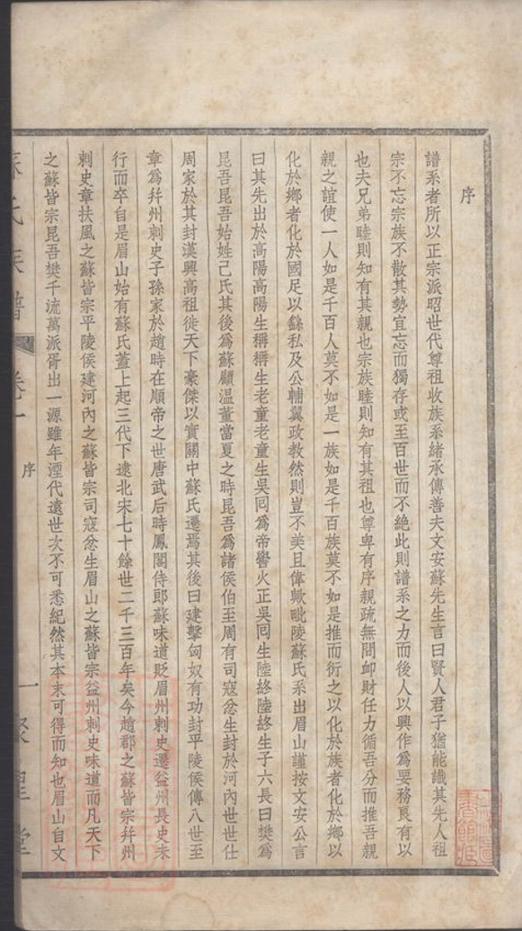 序
譜系者所以正宗派昭世代尊祖收族系緒承傳善夫文安蘇先生言曰賢人君子猶能識其先人祖
宗不忘宗族不散其勢宜忘而獨存或至百世而不絶此則譜系之力而後人以興作爲要務良有以
也夫兄弟睦則知有其親也宗族睦則知有其祖也尊卑有序親疏無間卹財任力循吾分而推吾親
親之誼使一人如是千百人莫不如是一族如是千百族莫不如是推而衍之以化於族者化於鄉以
化於鄉者化於國足以繇私及公輔翼政教然則豈不美且偉歟毗陵蘇氏系出眉山謹按文安公言
曰其先出於高陽高陽生稱稱生老童老童生吳回爲帝嚳火正吳回生陸終陸終生子六長曰樊爲
昆吾昆吾始姓己氏其後爲蘇顧溫董當夏之時昆吾爲諸侯伯至周有司寇忿生封於河內世世仕
周家於其封漢興高祖徙天下豪傑以實關中蘇氏遷焉其後曰建擊匈奴有功封平陵侯傳八世至
章爲幷州刺史子孫家於趙時在順帝之世唐武后時鳳閣侍郎蘇味道貶眉州刺史遷益州長史未
行而卒自是眉山始有蘇氏蓋上起三代下逮北宋七十餘世二千三百年矣今趙郡之蘇皆宗幷州
刺史章扶風之蘇皆宗平陵侯建河內之蘇皆宗司寇忿生眉山之蘇皆宗益州刺史味道而凡天下
之蘇皆宗昆吾樊千流萬派胥出一源雖年湮代遠世次不可悉紀然其本末可得而知也眉山自文
氏族譜
卷一
序
一
堂